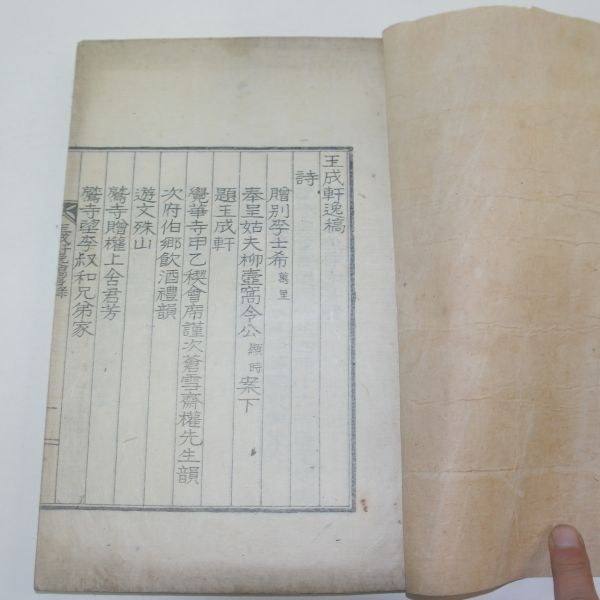 玉成軒逸稿
詩
贈別李士希萬里
奉呈姑夫柳壺窩令公顯時案下
題玉成軒
覺華寺甲乙稧會席謹次蒼雪齋權先生韻
次府伯鄉飮酒禮韻
遊文殊山
鷲寺贈權上舍君芳
鷲寺望李叔和兄弟家